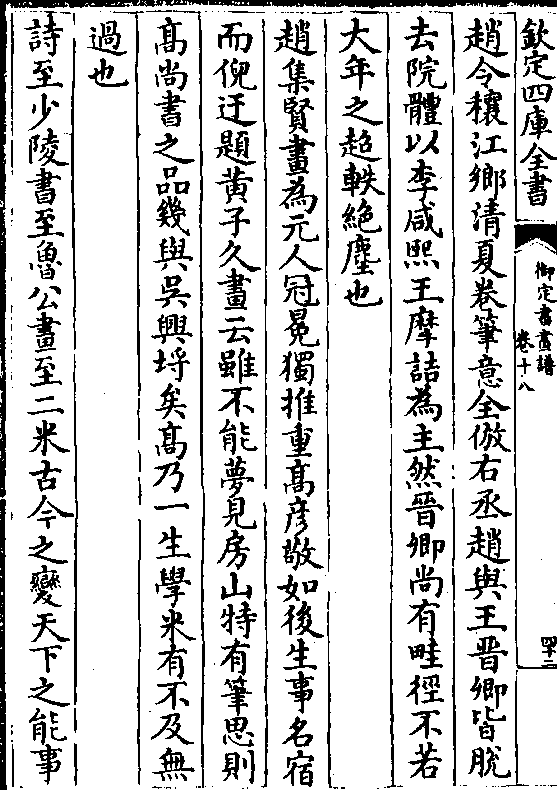 欽定四庫全書
御定書畫譜
卷十八
四十二
趙令穰江鄉清夏卷筆意全倣右丞趙與王晉卿皆脫
去院體以李咸熙王摩詰為主然晉卿尚有畦徑不若
大年之超軼絕塵也
趙集賢畫為元人冠冕獨推重高彥敬如後生事名宿
而倪迂題黃子久畫云雖不能夢見房山特有筆思則
高尚書之品幾與吳興埒矣高乃一生學米有不及無
過也
詩至少陵書至魯公畫至二米古今之變天下之能事